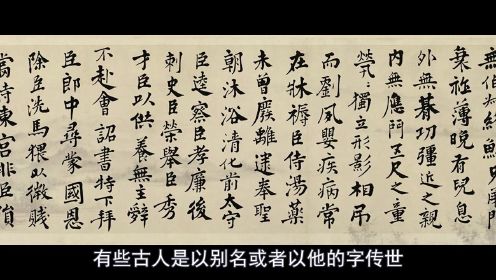 無伯叔終鮮兄弟門
衰祚薄晚有兒息
外無朞功彊近之親
內無應門五尺之童
煢煢獨立形影相吊
而劉夙嬰疾病常
在牀褥臣侍湯藥
未曾廢離逮奉聖
朝沐浴清化前太守
臣逵察臣孝廉後
刺史臣榮舉臣秀
才臣以供養無主辭
不赴會詔書特下拜
臣郎中尋蒙國恩
除臣洗馬猥以微賤
當侍東宮非臣隕
有些古人是以别名或者以他的字传世